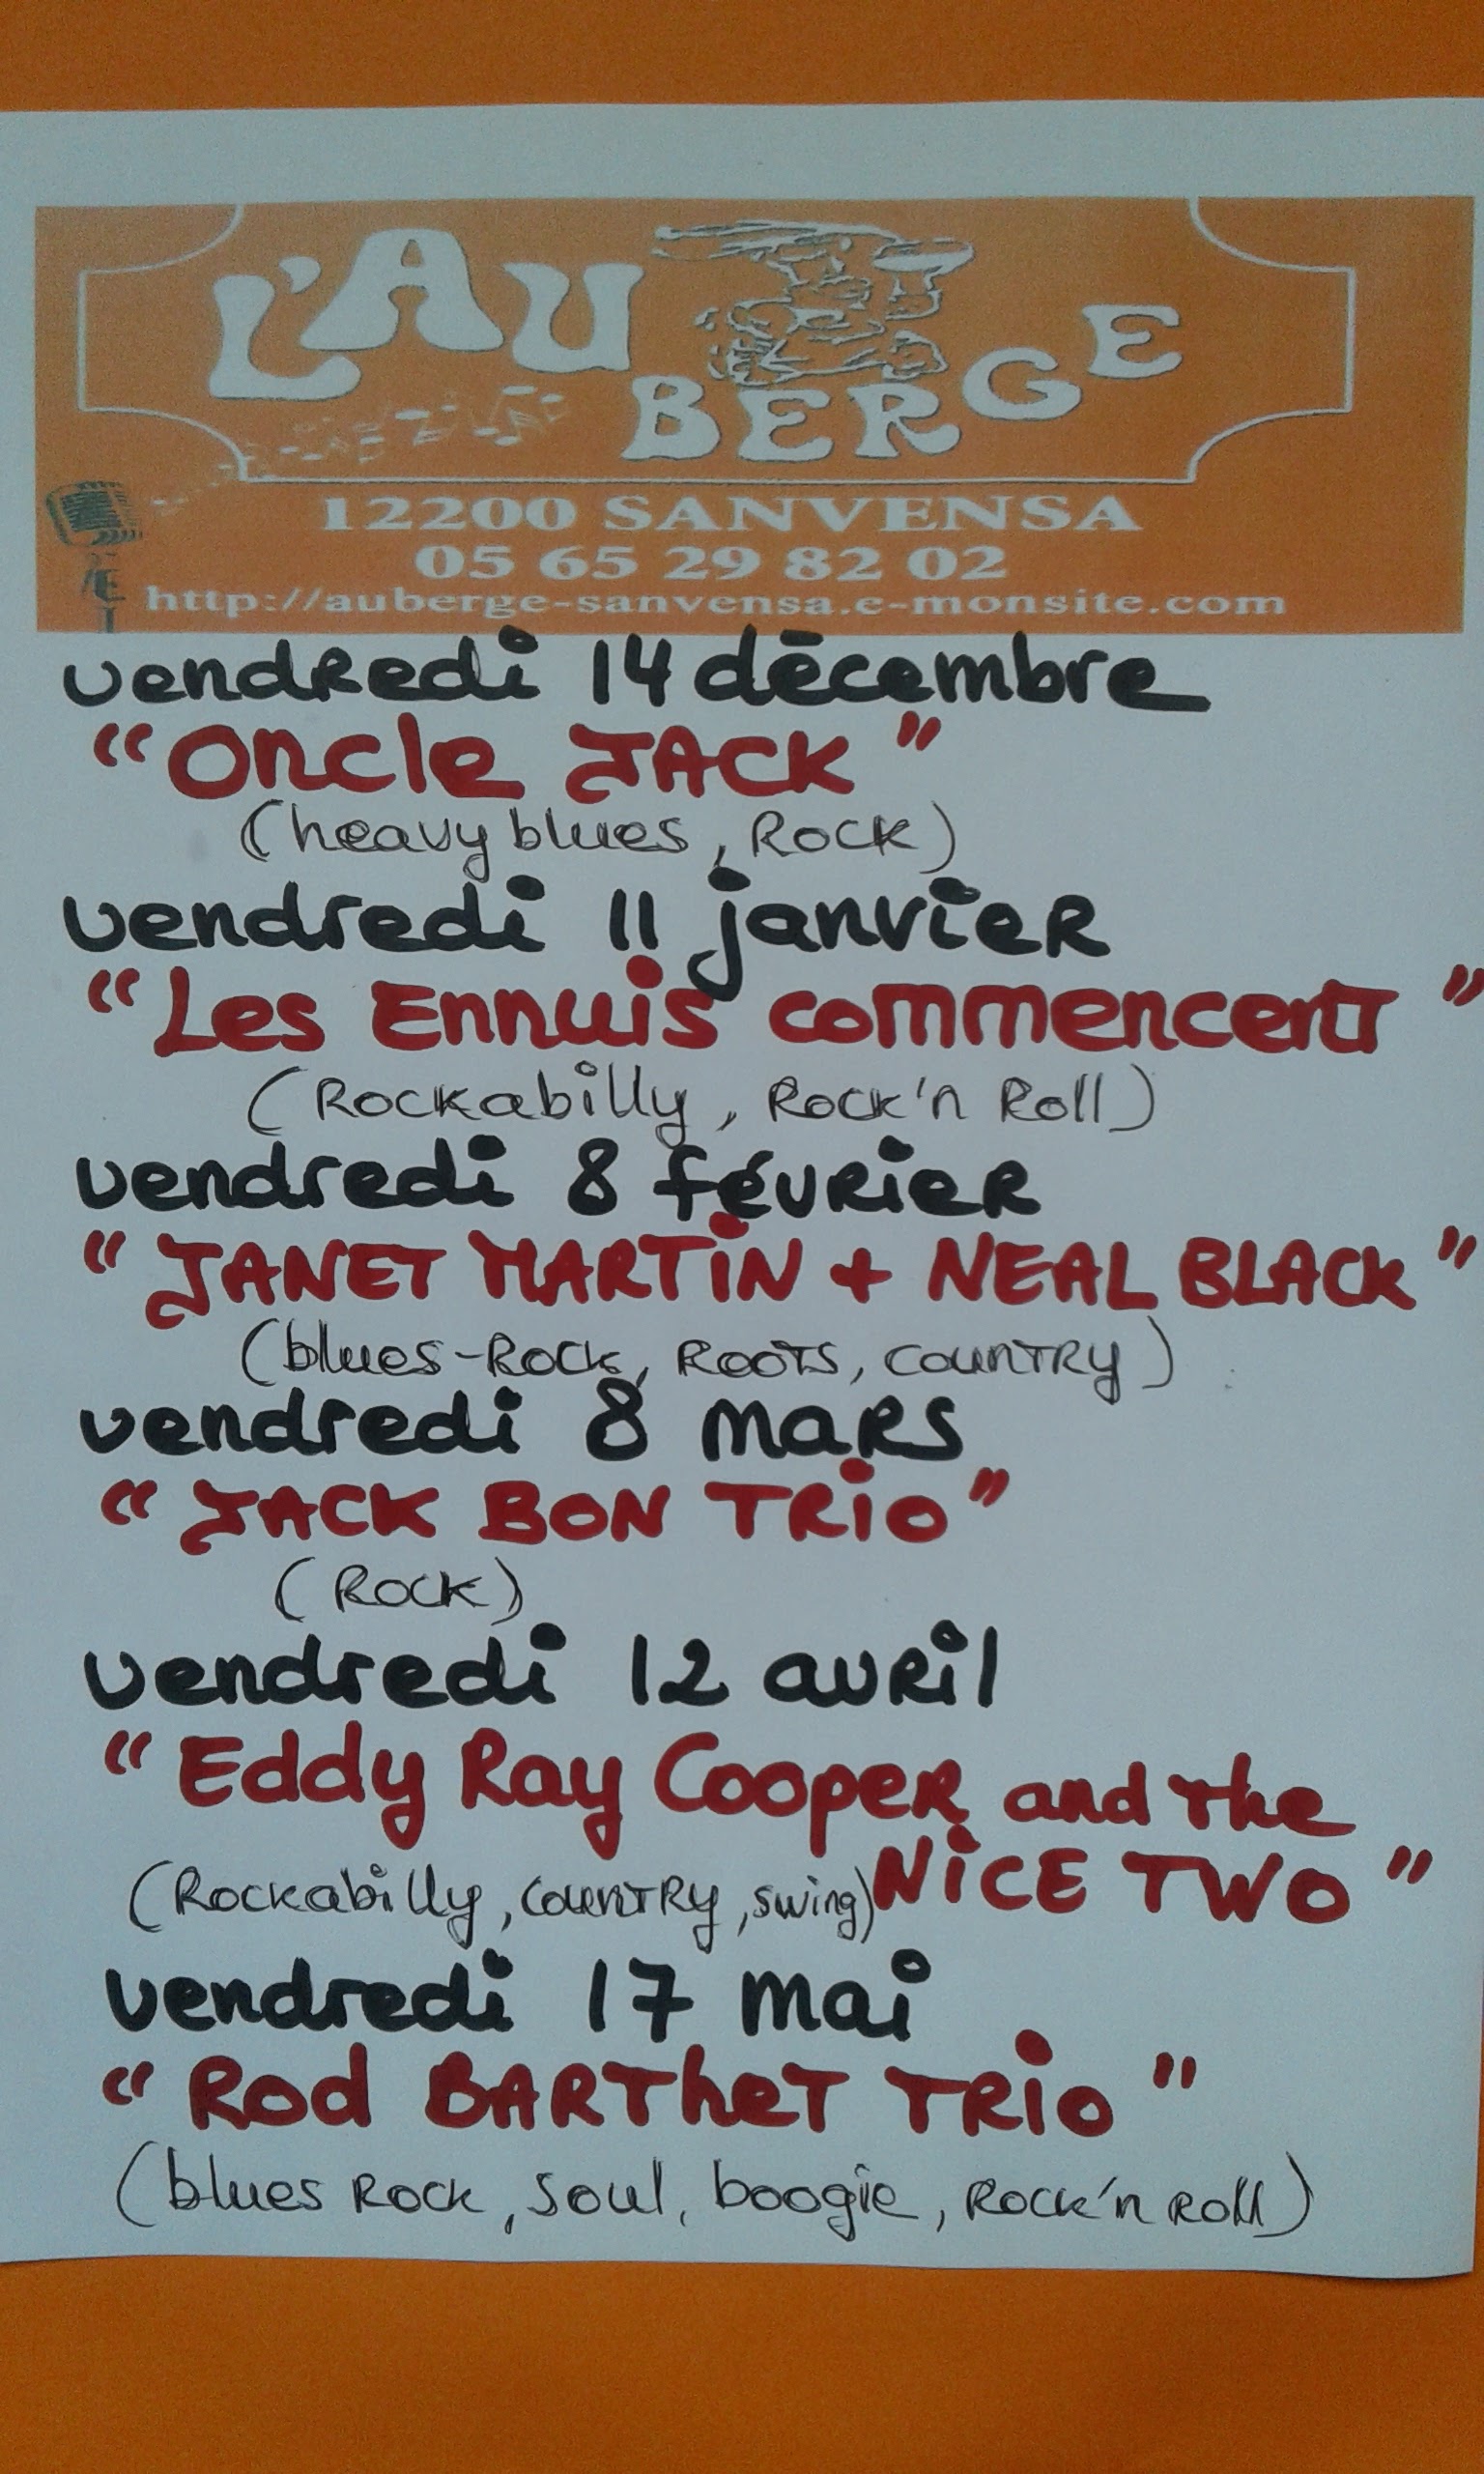 L'AUBERGE
12200 SANVENSA
05 65 29 82 02
http://auberge-sanvensa.e-monsite.com
vendredi 14 décembre
"Oncle JACK"
(heavy blues, Rock)
vendredi 11 janvier
"Les Ennuis commencent"
(Rockabilly, Rock'n Roll)
vendredi 8 février
"JANET MARTIN + NEAL BLACK"
(blues-Rock, ROOTS, COUNTRY)
vendredi 8 mars
"JACK BON TRIO"
(ROCK)
vendredi 12 avril
"Eddy Ray Cooper and the
NICE TWO"
(Rockabilly, COUNTRY, swing)
vendredi 17 mai
"Rod BARTHET TRIO"
(blues Rock, soul, boogie, Rock'n Roll)